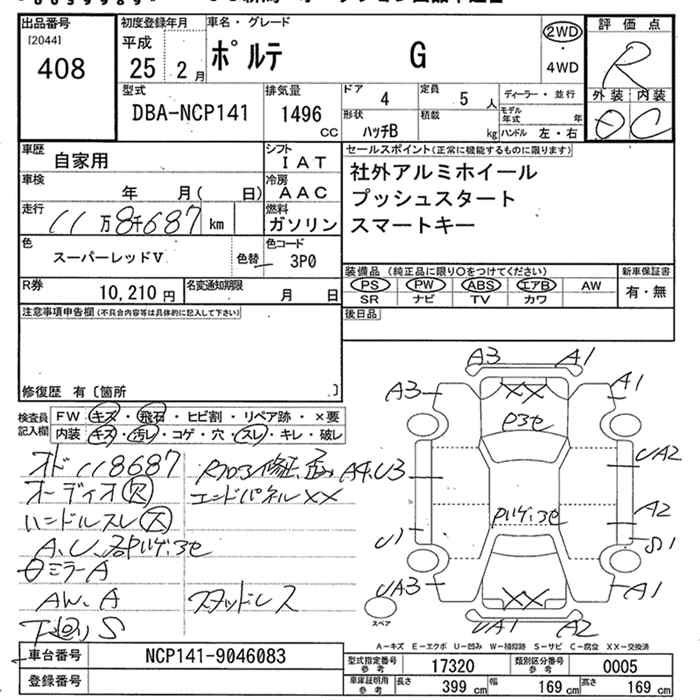 出品番号 初度登録年月 車名・グレード 評価点
[2044] 平成 ポルテ G 2WD R
408 25 2月 4WD
型式 排気量 ドア 4 定員 5人 ディーラー・並行 外装 内装
DBA-NCP141 1496 cc 形状 ハッチB 積載 kg モデル年式 年 C
ハンドル 左・右
車歴 自家用 シフト IAT セールスポイント(正常に機能するものに限ります)
車検 年 月( 日) 冷房 AAC 社外アルミホイール
走行 11万8千687 km 燃料 ガソリン プッシュスタート
スマートキー
色 スーパーレッドV 色替 色コード 3P0
装備品(純正品に限り○をつけてください) 新車保証書
R券 10,210円 名変通知期限 月 日 PS PW ABS エアB AW 有・無
SR ナビ TV カワ
注意事項申告欄(不具合内容等は具体的に記入して下さい) 後日品
修復歴 有〔箇所 〕
検査員記入欄 FW キズ・飛石・ヒビ割・リペア跡・×要
内装 キズ・汚レ・コゲ・穴・スレ・キレ・破レ
オド118687
オーディオ欠 エンドパネルXX
ハンドルスレ大
A、U、
ミラーA
AW、A スタッドレス
下回りS
A3 A1
A3 XX A1
A4.U3 UA2
A2
U1 S1
UA3 XX A1
UA1 A2
スペア
A-キズ E-エクボ U-凹み W-補修跡 S-サビ C-腐食 XX-交換済
車台番号 NCP141-9046083 型式指定番号 参考 17320 類別区分番号 参考 0005
登録番号 車庫証明用 参考 長さ 399 cm 幅 169 cm 高さ 169 cm